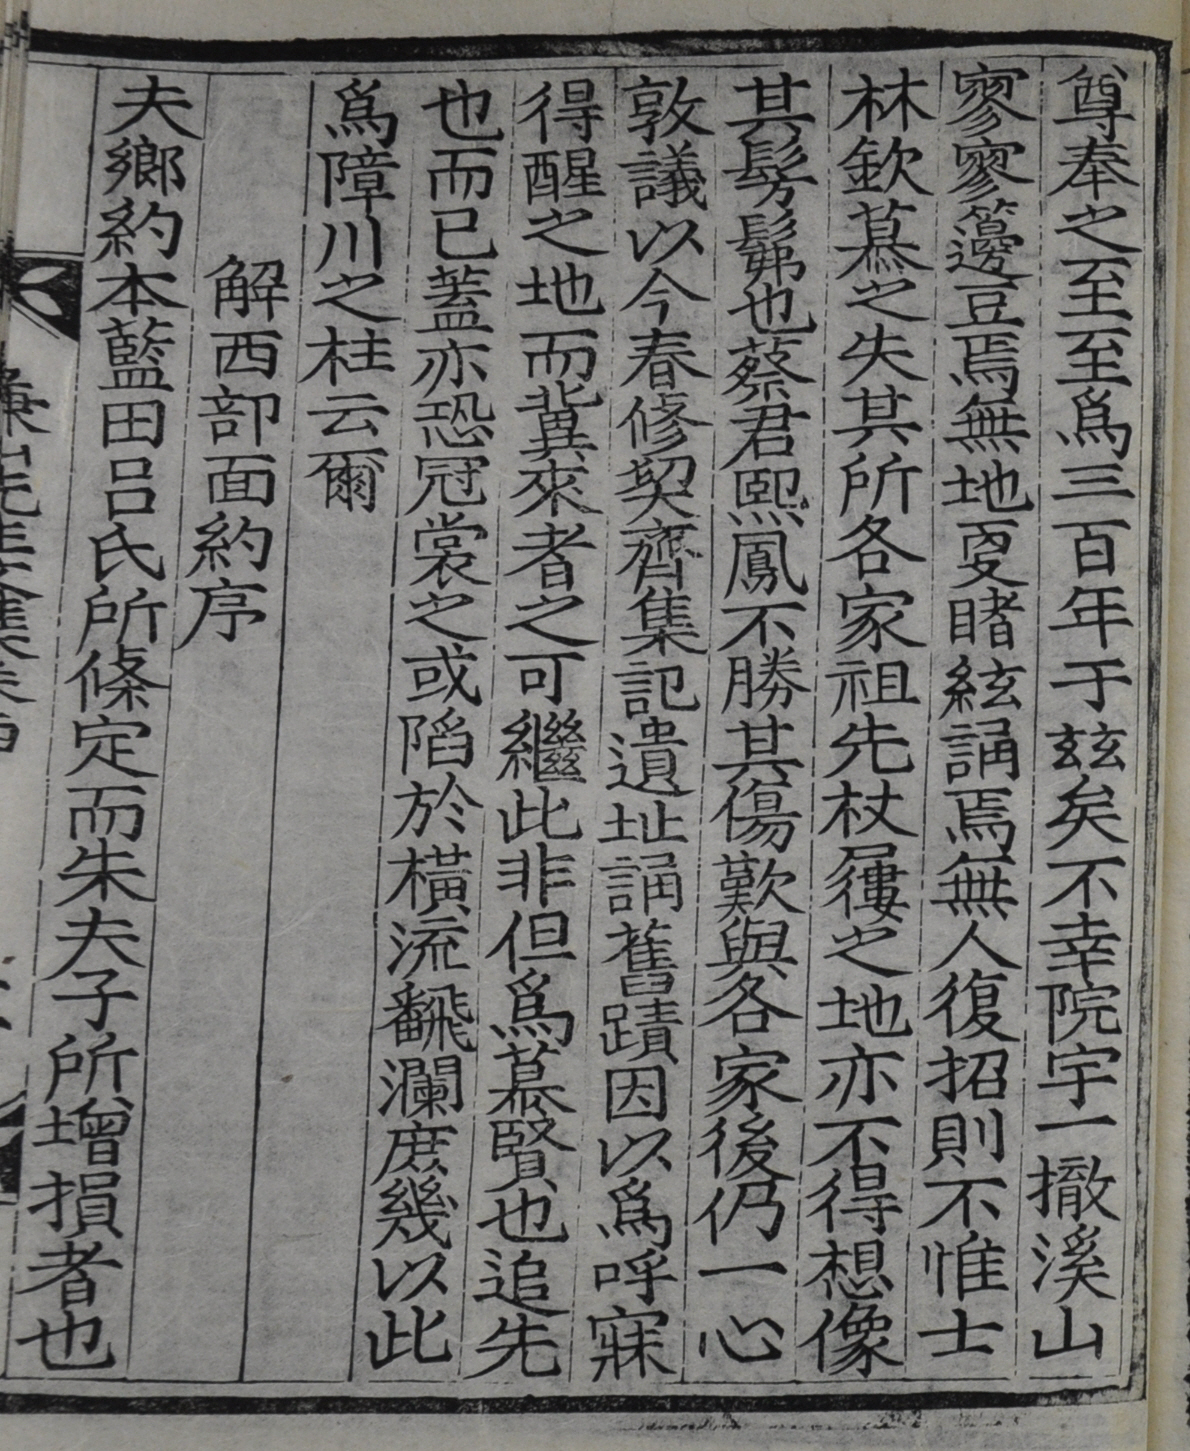 尊奉之至至爲三百年于玆矣不幸院宇一撤溪山
寥寥籩豆焉無地更睹絃誦焉無人復招則不惟士
林欽慕之失其所各家祖先杖屨之地亦不得想像
其髣髴也蔡君熙鳳不勝其傷歎與各家後仍一心
敦議以今春修契齊集記遺址誦舊蹟因以爲呼寐
得醒之地而冀來者之可繼此非但爲慕賢也追先
也而已蓋亦恐冠裳之或陷於橫流飜瀾庶幾以此
爲障川之柱云爾
解西部面約序
夫鄉約本藍田呂氏所條定而朱夫子所增損者也